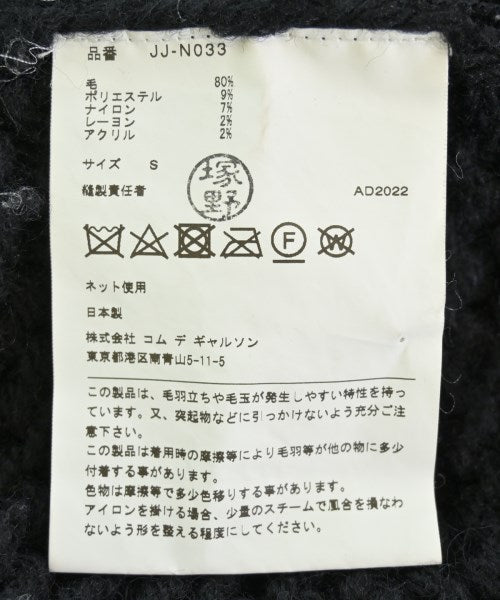 品番 JJ-N033
毛 80%
ポリエステル 9%
ナイロン 7%
レーヨン 2%
アクリル 2%
サイズ S
塚野
縫製責任者 AD2022
F W
ネット使用
日本製
株式会社 コム デ ギャルソン
東京都港区南青山5-11-5
この製品は、毛羽立ちや毛玉が発生しやすい特性を持っ
ています。又、突起物などに引っかけないよう充分ご注
意下さい。
この製品は着用時の摩擦等により毛羽等が他の物に多少
付着する事があります。
色物は摩擦等で多少色移りする事があります。
アイロンを掛ける場合、少量のスチームで風合を損なわ
ないよう形を整える程度にしてください。